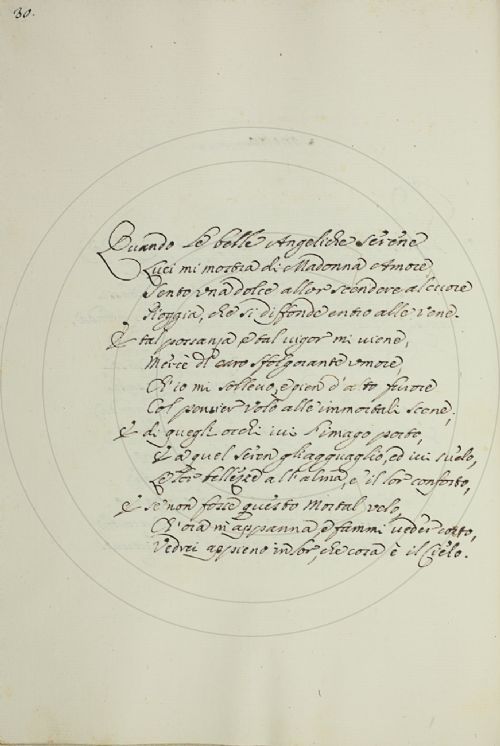 30.
Quando le belle Angeliche serene
Luci mi mostra di Madonna Amore,
Sento una dolce allor scendere al cuore
Pioggia, che si diffonde entro alle vene.
E tal possanza e tal vigor mi viene,
Mercè del caro sfolgorante umore,
Ch'io mi sollevo, e pien d'alto furore
Col pensier volo alle immortali scene;
E di quegli occhi ivi l'imago porto,
E a quel seren gli agguaglio, ed ivi svelo,
Le lor bellezze all'alma, e il lor conforto,
E se non fosse questo mortal velo,
Ch'ora m'appanna, e fammi veder corto,
Vedrei appieno in lor, che cosa è il Cielo.